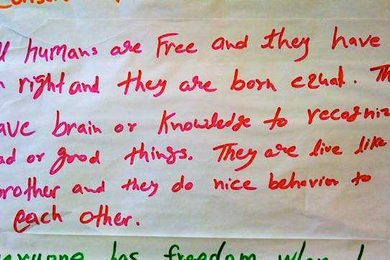 humans are Free and they have
right and they are born equal.
ave brain or Knowledge to recogniz
ad or good things. They are live like
brother and they do nice behavior to
each other.
eryone has freedom